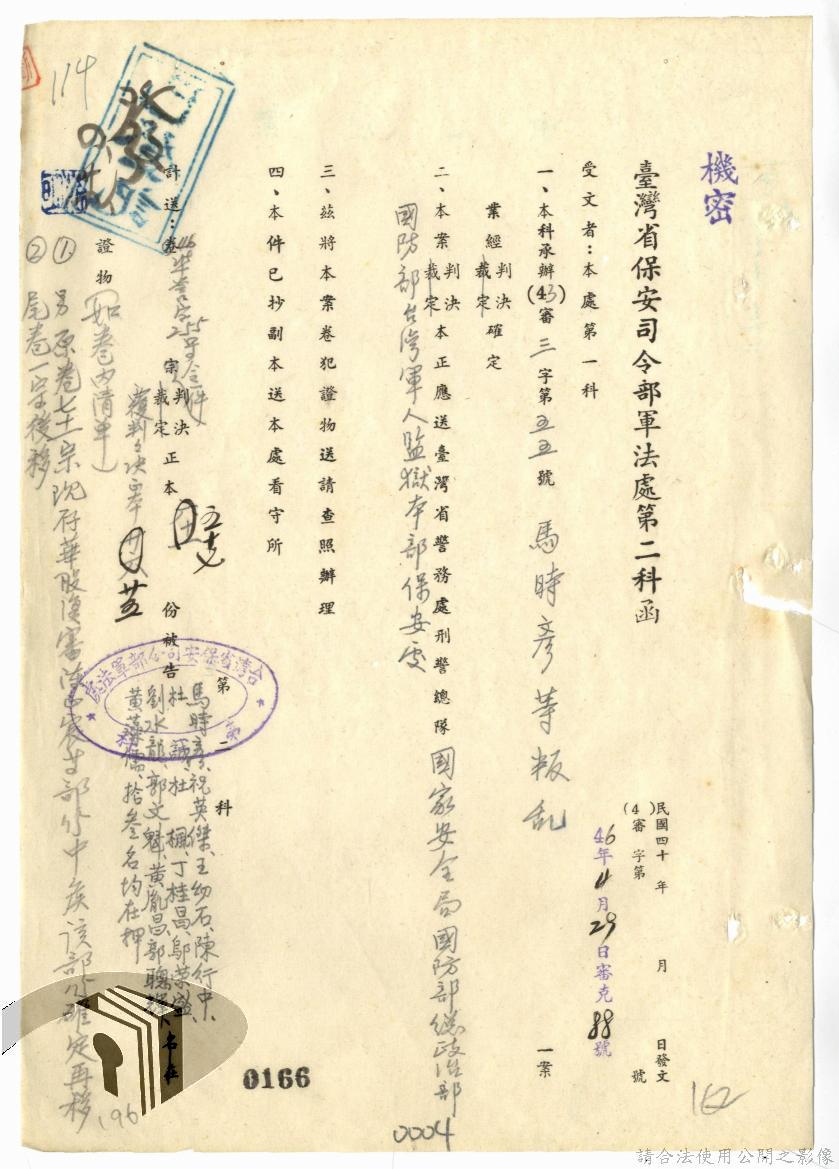 機密
臺灣省保安司令部軍法處第二科函
民國四十年 月 日發文
(4 )審 字第 號
46年4月29日審克88號
受文者：本處第一科
一、本科承辦(43)審三字第五五號 馬時彥等叛乱 一案
業經判決裁定確定
二、本案判決裁定本正應送臺灣省警務處刑警總隊 國家安全局國防部總政治部
國防部台灣軍人監獄本部保安處
三、茲將本案卷犯證物送請查照辦理
四、本件已抄副本送本處看守所
計送：卷 宗 判決裁定正本 份被告
馬時彥、祝英傑、王幼石、陳行中、
杜 誠、杜 楓、丁桂昌、鄔榮盛、
劉水龍、郭文魁、黃胤昌、郭聰
拾叁名均在押
覆判判決正本
證物 (如卷內清單)
① 另原卷七十一宗現存華股
部分中俟該部分確定再移
② 尾卷一宗後移
台灣省保安司令部軍法處
第二科
114
0166
0004
162
196
請合法使用公開之影像